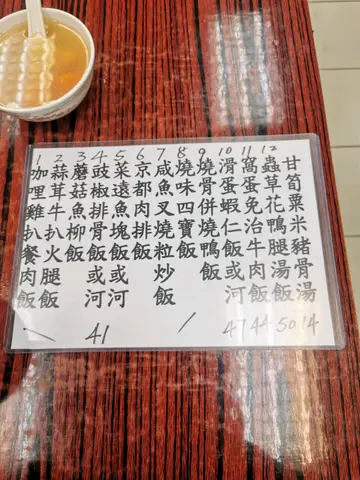 1 咖哩雞扒餐肉飯
2 蒜茸牛扒火腿飯
3 蘑菇魚柳飯
4 豉椒排骨飯或河
5 菜遠魚塊飯或河
6 京都肉排飯
7 咸魚叉燒粒炒飯
8 燒味四寶飯
9 燒骨併燒鴨飯
10 滑蛋蝦仁飯或河
11 窩蛋免治牛肉飯
12 蟲草花鴨腿湯飯
甘筍粟米豬骨湯
41
47 44 50 14